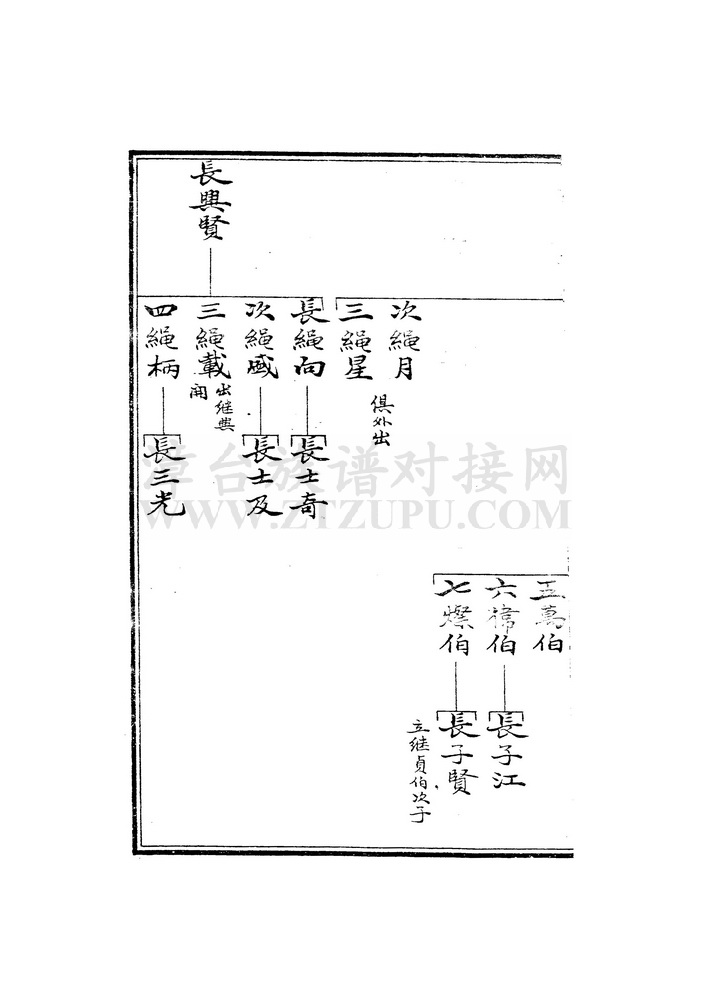 長興賢
次繩月
三繩星
俱外出
長繩向
次繩威
三繩載
出继興
開
四繩柄
長士奇
長士及
長三光
五萬伯
六禕伯
七燦伯
長子江
長子賢
立继貞伯次子
漳台族谱对接网
WWW.ZTZUPU.COM